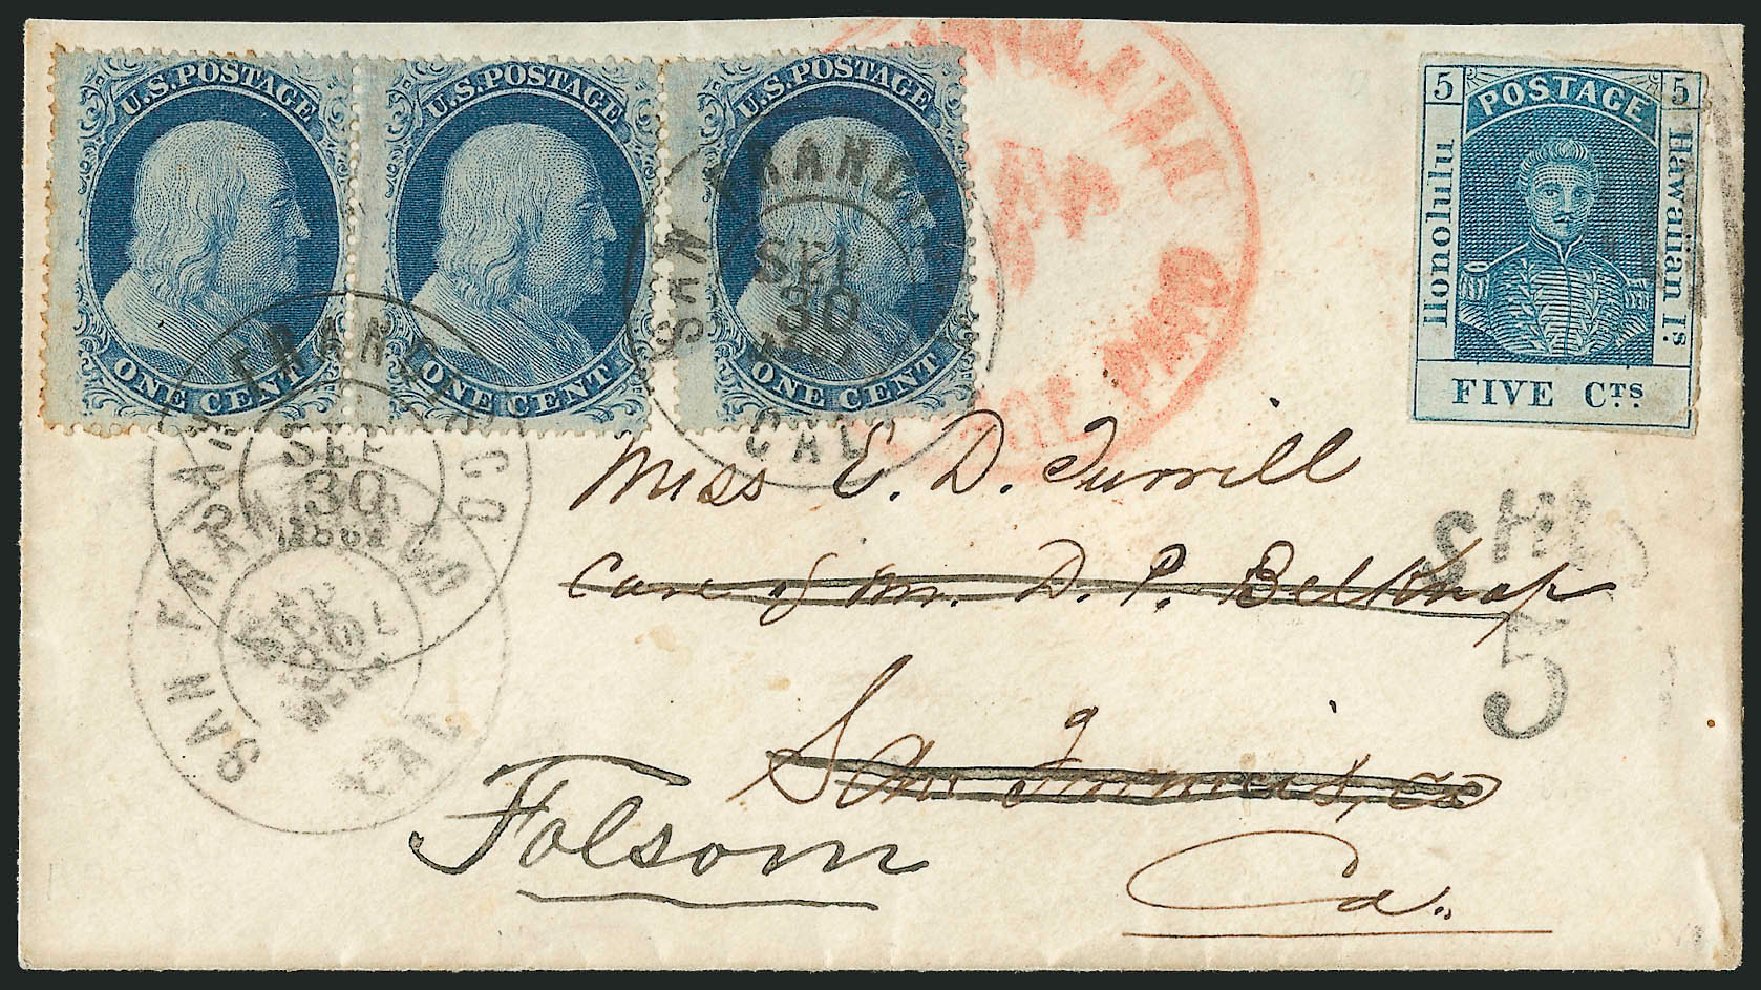 U.S. POSTAGE
ONE CENT
U.S. POSTAGE
ONE CENT
U.S. POSTAGE
ONE CENT
5 POSTAGE 5
Honolulu
Hawaiian Is.
FIVE Cts.
SAN FRANCISCO
CAL
SEP
30
SAN FRANCISCO
SEP
30
1861
SAN FRANCISCO
CAL
SEP
30
SHIP
5
Miss E. D. Turrill
Care of Mr. D. P. Belknap
San Francisco
Folsom
Ca.